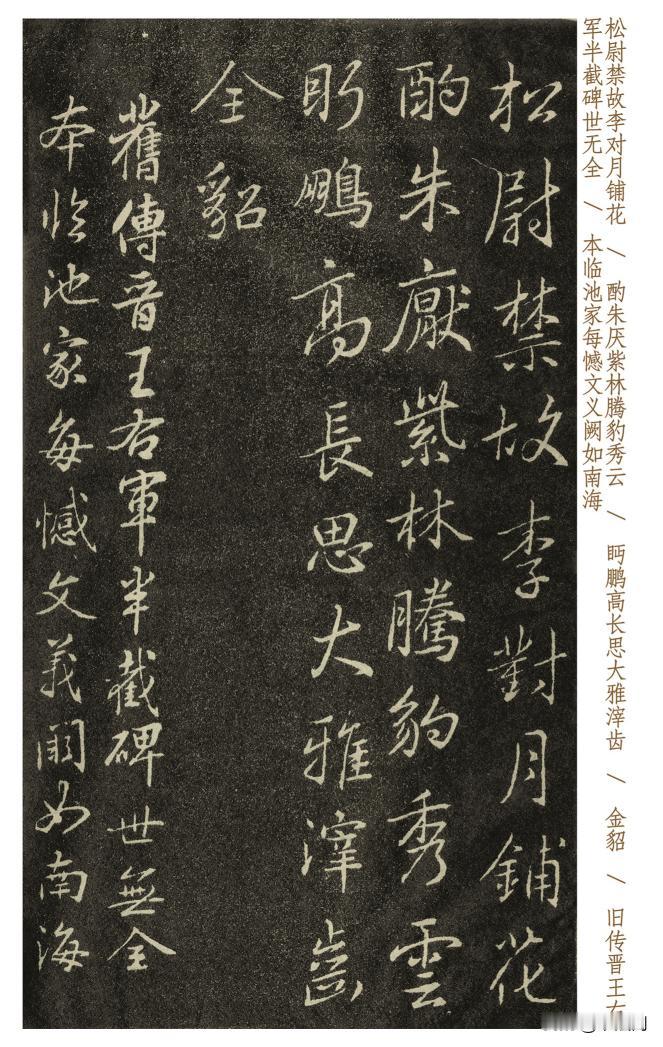 松尉禁故李对月铺花 / 酌朱厌紫林腾豹秀云 / 眄鹏高长思大雅滓齿 / 金貂 / 旧传晋王右
军半截碑世无全 / 本临池家每憾文义阙如南海
松尉禁故李對月鋪花
酌朱厭紫林騰豹秀雲
眄鵬高長思大雅滓齒
全貂
舊傳晉王右軍半截碑世無全
本临池家每憾文義闕如南海